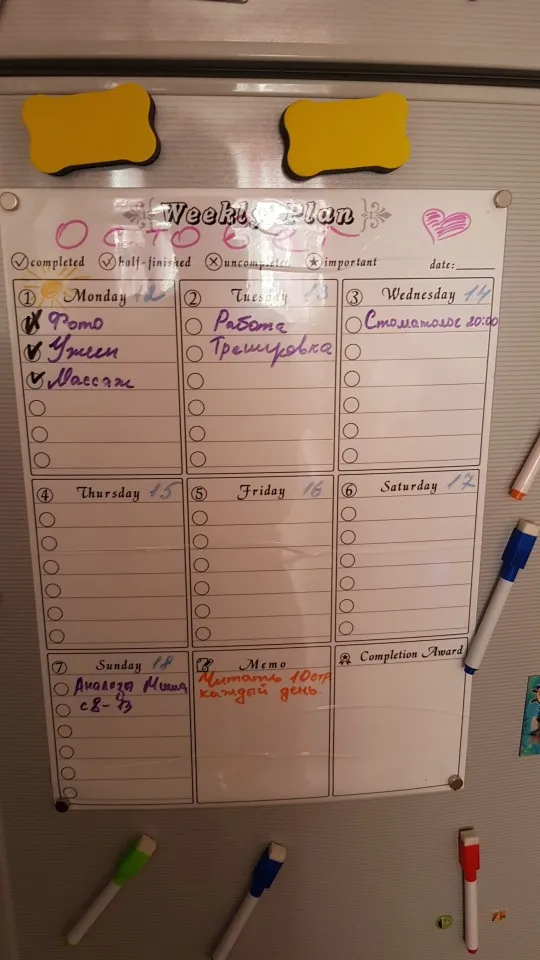 Weekly Plan
October
completed half-finished uncompleted important date:
1 Monday 12
Фото
Ужин
Массаж
2 Tuesday 13
Работа
Тренировка
3 Wednesday 14
Стоматолог 20:00
4 Thursday 15
5 Friday 16
6 Saturday 17
7 Sunday 18
Анализы Миша
с 8-13
Memo
Читать 10стр
каждый день.
Completion Award